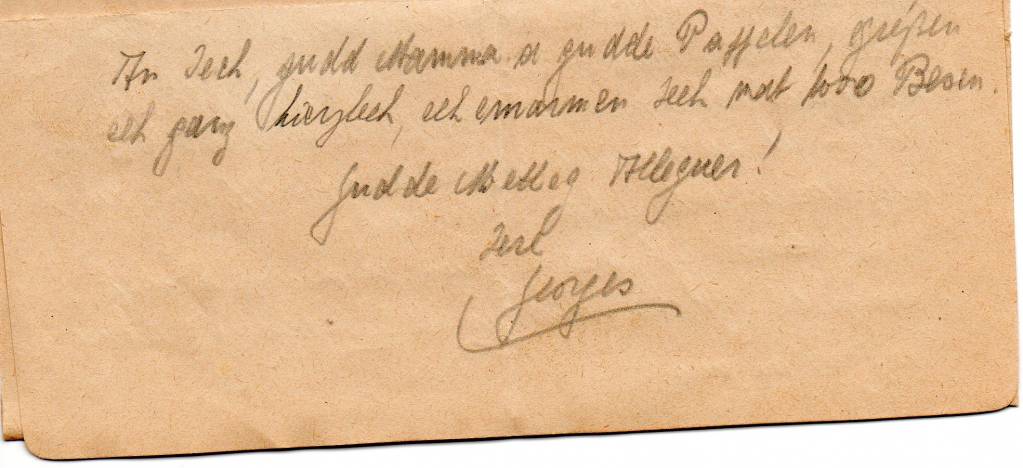 An Iech, gudd Mamma a gudde Pappelen, gréßen
ech ganz hierzlech, ech emarmen Iech mat 1000 Besen.
Gudde Metteg Alleguer!
Ierl
Georges